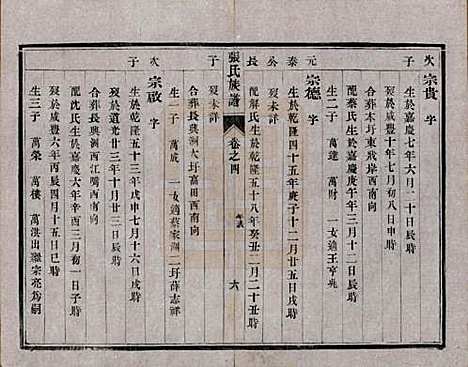 次 宗貴 字
子 生於嘉慶七年六月二十日辰時
歿於咸豐十年七月初八日申時
合葬木圩東戕岸西南向
配蔡氏生於嘉慶庚午年三月十二日辰時
生二子 萬達 萬財 一女適王亨堯
元 宗德 字
泰 生於乾隆四十五年庚子十二月廿五日戌時
公 歿未詳
長 配解氏生於乾隆五十八年癸丑二月二十丑時
張氏族譜 卷之四 六
子 歿未詳
合葬長興洲大圩富田西南向
生一子 萬成 一女適蔡家洲二圩薛志祥
次 宗啟 字
子 生於乾隆五十三年戊申七月十六日戌時
歿於道光廿三年十月廿三日辰時
合葬長興洲西江嘴西南向
配沈氏生於嘉慶六年辛酉三月初一日子時
歿於咸豐六年丙辰四月十五日巳時
生三子 萬榮 萬樓 萬洪出繼宗亮爲嗣